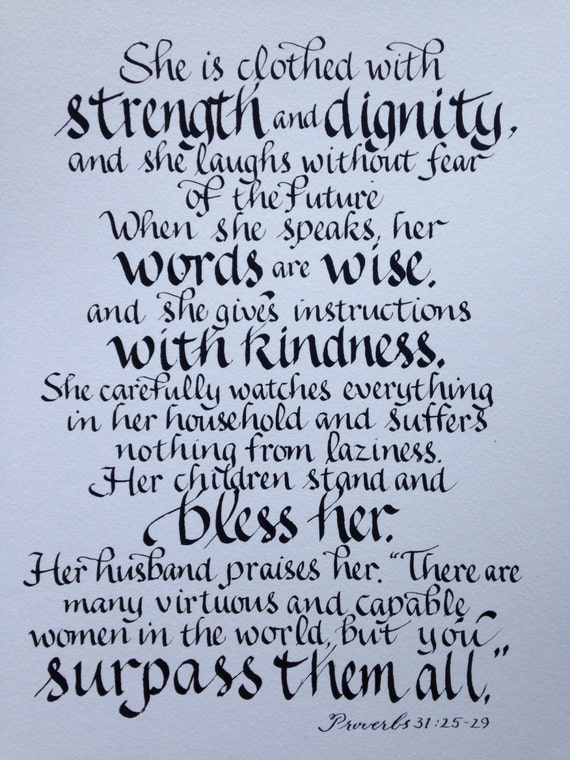 She is clothed with
strength and dignity,
and she laughs without fear
of the future
When she speaks, her
words are wise.
and she gives instructions
with kindness.
She carefully watches everything
in her household and suffers
nothing from laziness.
Her children stand and
bless her.
Her husband praises her. "There are
many virtuous and capable
women in the world, but you
surpass them all."
Proverbs 31:25-29